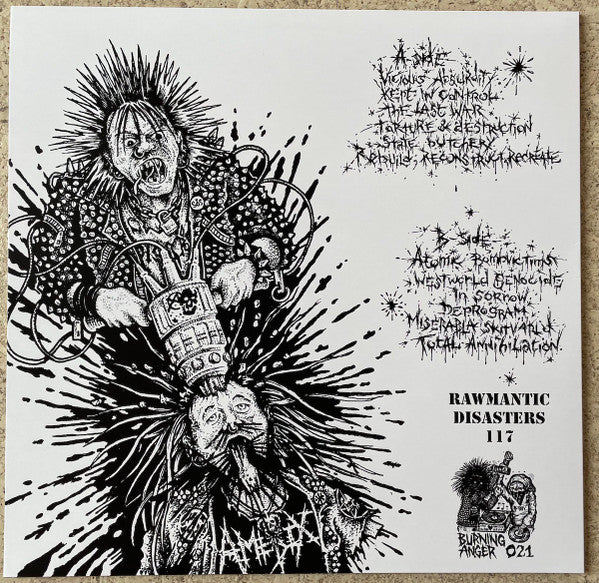 A SIDE
VICIOUS ABSURDITY
KEPT IN CONTROL
THE LAST WAR
TORTURE & DESTRUCTION
STATE BUTCHERY
REBUILD, RECONSTRUCT, RECREATE
B SIDE
ATOMIC BOMBVICTIMS
WESTWORLD GENOCIDE
IN SORROW
DEPROGRAM
MISERABLA SKITVÄRLD
TOTAL ANNIHILATION
RAWMANTIC
DISASTERS
117
BURNING
ANGER 021